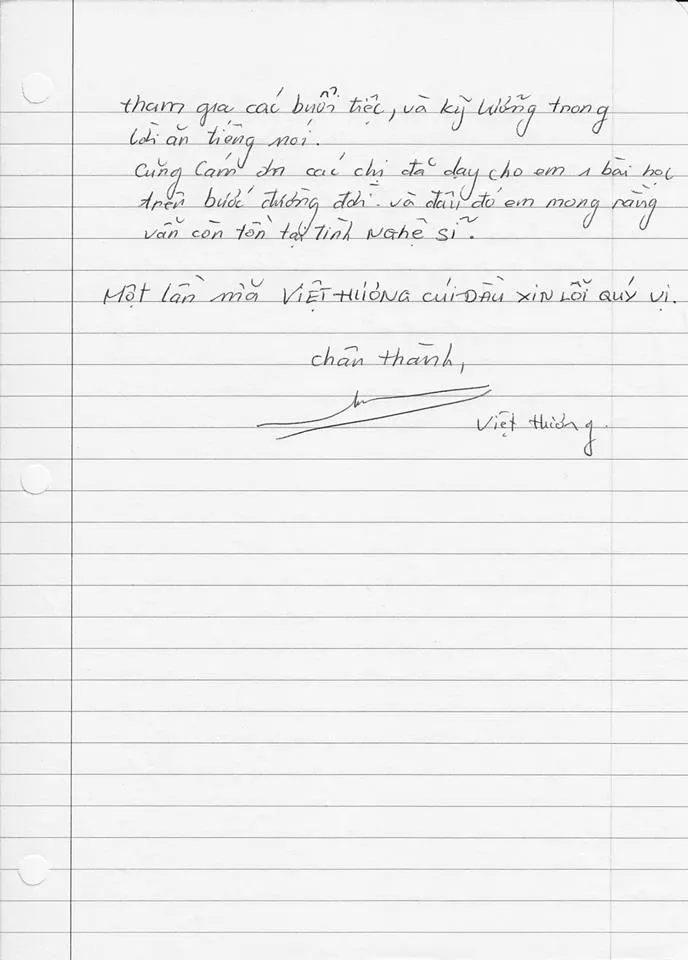 tham gia các buổi tiệc, và kỹ lưỡng trong
lời ăn tiếng nói.
Cũng Cám ơn các chị đã dạy cho em 1 bài học
trên bước đường đời. và đâu đó em mong rằng
vẫn còn tồn tại tình NGHỆ SĨ.
Một lần nữa VIỆT HƯƠNG CÚI ĐẦU XIN LỖI QUÝ VỊ.
chân thành,
Việt Hương